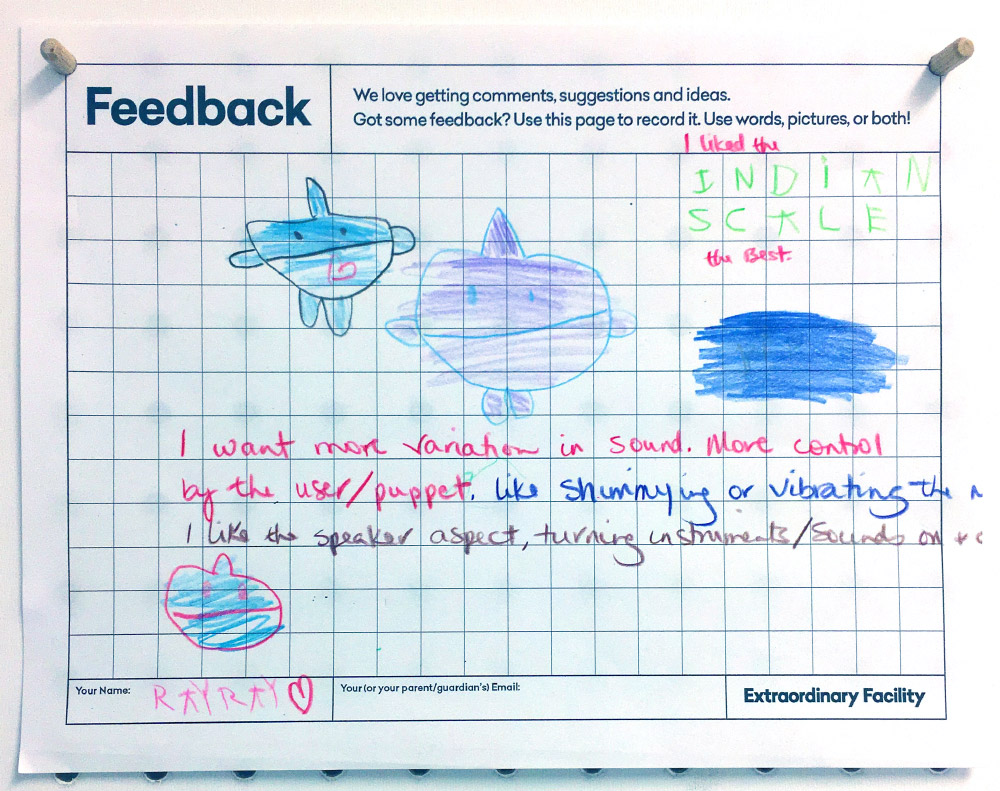 Feedback
We love getting comments, suggestions and ideas.
Got some feedback? Use this page to record it. Use words, pictures, or both!
I liked the
INDIAN
SCALE
the Best.
I want more variation in sound. More control
by the user/puppet. like shimmying or vibrating the
I like the speaker aspect, turning instruments/sounds on +
Your Name:
RAYRAY
Your (or your parent/guardian's) Email:
Extraordinary Facility